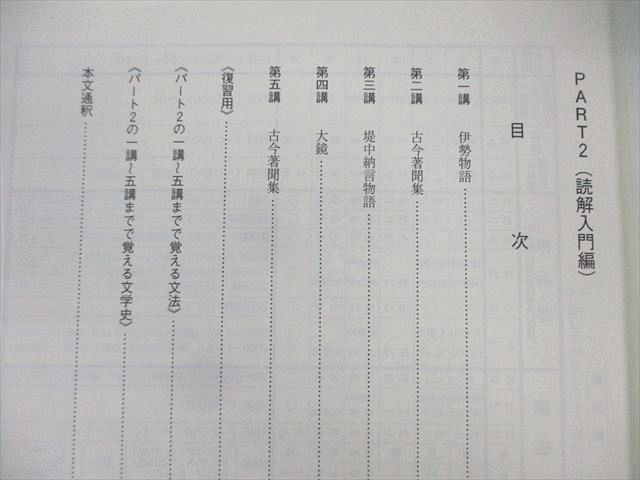 PART2（読解入門編）
目次
第一講　伊勢物語
第二講　古今著聞集
第三講　堤中納言物語
第四講　大鏡
第五講　古今著聞集
《復習用》
《パート2の一講～五講までで覚える文法》
《パート2の一講～五講までで覚える文学史》
本文通釈